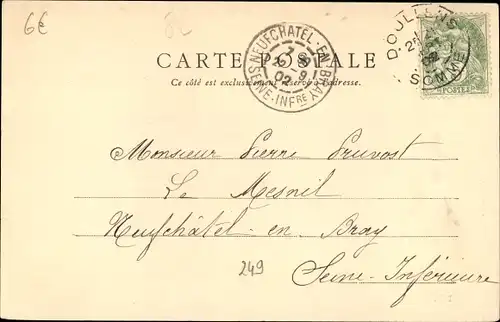 6€
CARTE POSTALE
Ce côté est exclusivement réservé à l'adresse.
NEUFCHATEL-EN-BRAY
7
02
SEINE-INFRE
DOULLENS
02
SOMME
POSTES
Monsieur Pierre Pruvost
Le Mesnil
Neufchâtel-en-Bray
249
Seine-Inférieure